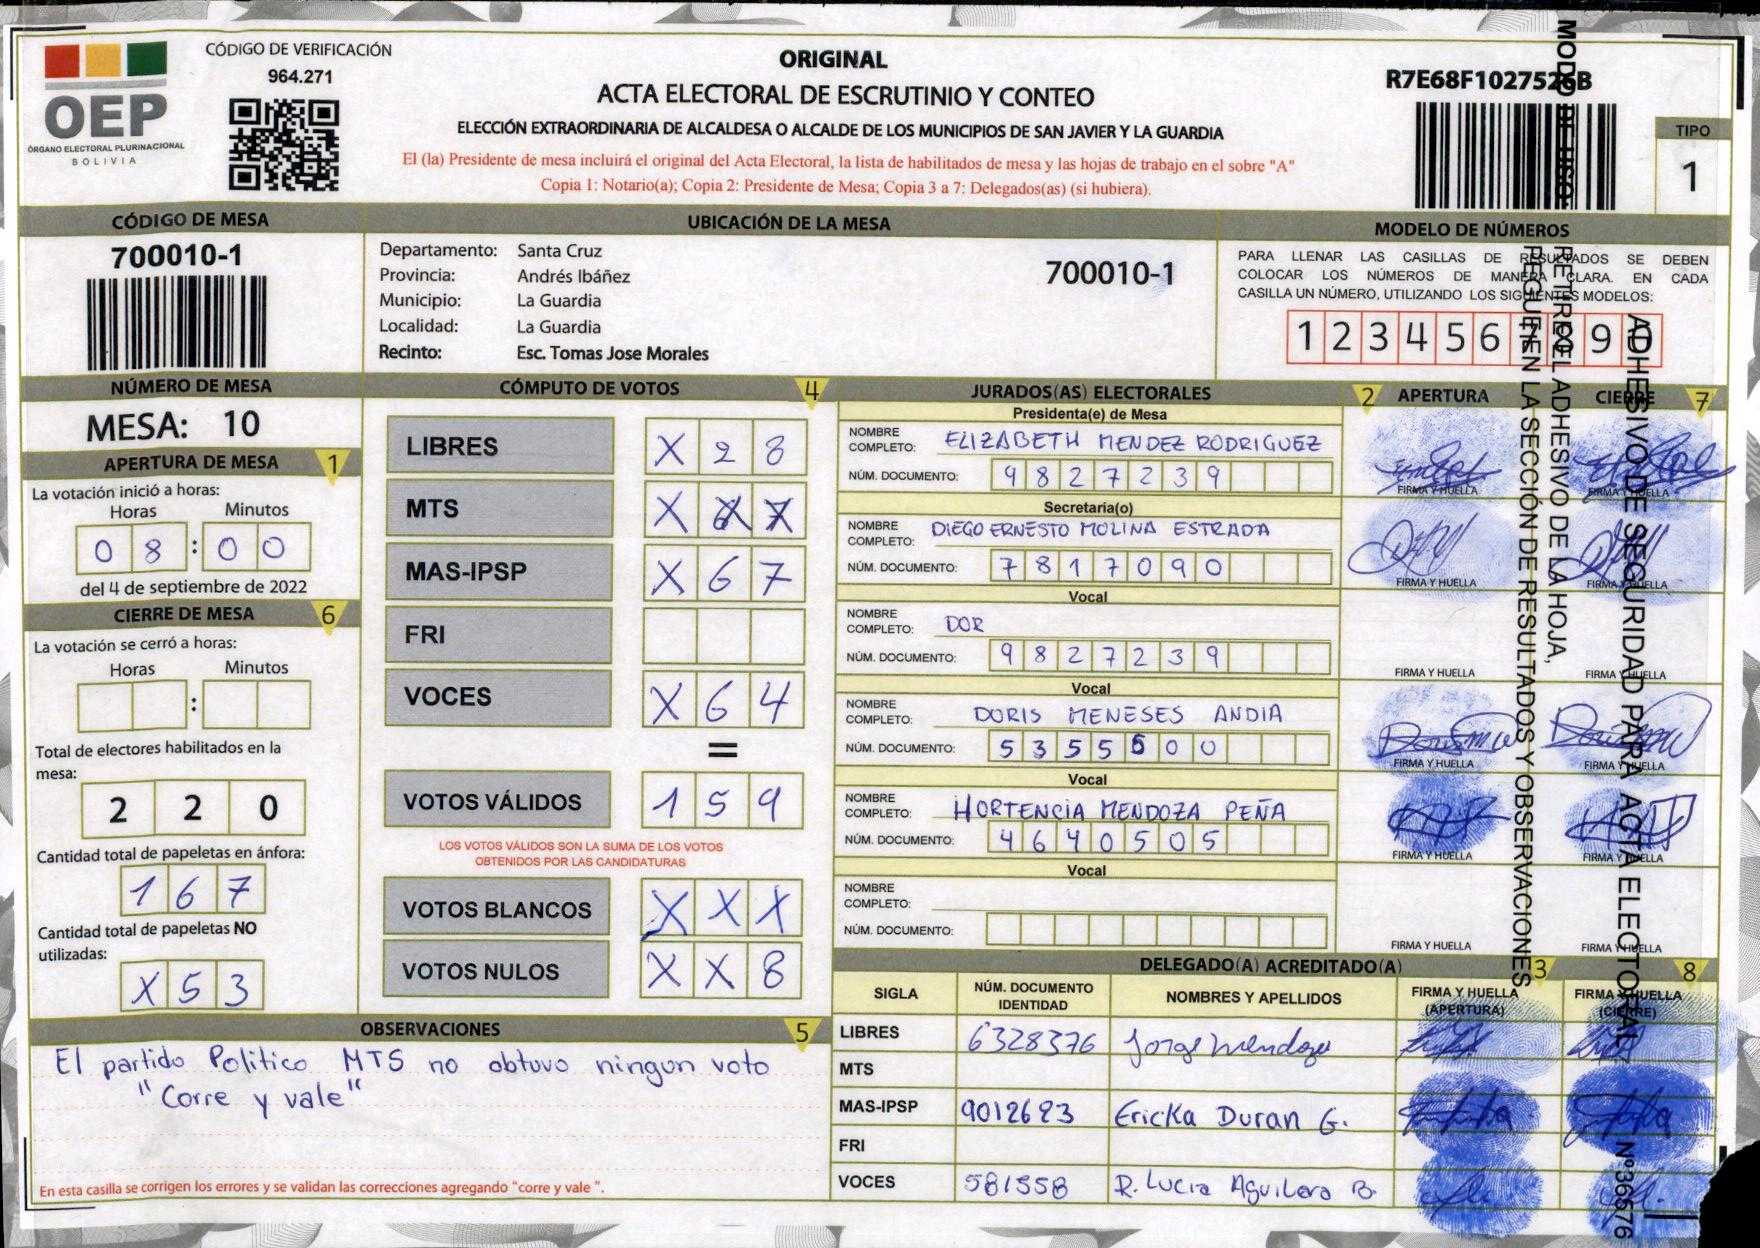 OEP
ÓRGANO ELECTORAL PLURINACIONAL
BOLIVIA
CÓDIGO DE VERIFICACIÓN
964.271
ORIGINAL
ACTA ELECTORAL DE ESCRUTINIO Y CONTEO
ELECCIÓN EXTRAORDINARIA DE ALCALDESA O ALCALDE DE LOS MUNICIPIOS DE SAN JAVIER Y LA GUARDIA
El (la) Presidente de mesa incluirá el original del Acta Electoral, la lista de habilitados de mesa y las hojas de trabajo en el sobre "A"
Copia 1: Notario(a); Copia 2: Presidente de Mesa; Copia 3 a 7: Delegados(as) (si hubiera).
R7E68F1027526B
TIPO
1
CÓDIGO DE MESA
700010-1
UBICACIÓN DE LA MESA
Departamento: Santa Cruz
Provincia: Andrés Ibáñez
Municipio: La Guardia
Localidad: La Guardia
Recinto: Esc. Tomas Jose Morales
700010-1
MODELO DE NÚMEROS
PARA LLENAR LAS CASILLAS DE RESULTADOS SE DEBEN
COLOCAR LOS NÚMEROS DE MANERA CLARA. EN CADA
CASILLA UN NÚMERO, UTILIZANDO LOS SIGUIENTES MODELOS:
1 2 3 4 5 6 7 8 9 0
NÚMERO DE MESA
MESA: 10
APERTURA DE MESA 1
La votación inició a horas:
Horas Minutos
0 8 : 0 0
del 4 de septiembre de 2022
CIERRE DE MESA 6
La votación se cerró a horas:
Horas Minutos
:
Total de electores habilitados en la
mesa:
2 2 0
Cantidad total de papeletas en ánfora:
1 6 7
Cantidad total de papeletas NO
utilizadas:
X 5 3
CÓMPUTO DE VOTOS 4
LIBRES X 2 8
MTS X X X
MAS-IPSP X 6 7
FRI
VOCES X 6 4
=
VOTOS VÁLIDOS 1 5 9
LOS VOTOS VÁLIDOS SON LA SUMA DE LOS VOTOS
OBTENIDOS POR LAS CANDIDATURAS
VOTOS BLANCOS X X X
VOTOS NULOS X X 8
OBSERVACIONES 5
El partido Politico MTS no obtuvo ningun voto
"Corre y vale"
En esta casilla se corrigen los errores y se validan las correcciones agregando "corre y vale ".
JURADOS(AS) ELECTORALES 2 APERTURA CIERRE 7
Presidenta(e) de Mesa
NOMBRE COMPLETO: ELIZABETH MENDEZ RODRIGUEZ
NÚM. DOCUMENTO: 9 8 2 7 2 3 9
FIRMA Y HUELLA FIRMA Y HUELLA
Secretaria(o)
NOMBRE COMPLETO: DIEGO ERNESTO MOLINA ESTRADA
NÚM. DOCUMENTO: 7 8 1 7 0 9 0
FIRMA Y HUELLA FIRMA Y HUELLA
Vocal
NOMBRE COMPLETO: DOR
NÚM. DOCUMENTO: 9 8 2 7 2 3 9
FIRMA Y HUELLA FIRMA Y HUELLA
Vocal
NOMBRE COMPLETO: DORIS MENESES ANDIA
NÚM. DOCUMENTO: 5 3 5 5 6 0 0
FIRMA Y HUELLA FIRMA Y HUELLA
Vocal
NOMBRE COMPLETO: HORTENCIA MENDOZA PEÑA
NÚM. DOCUMENTO: 4 6 4 0 5 0 5
FIRMA Y HUELLA FIRMA Y HUELLA
Vocal
NOMBRE COMPLETO:
NÚM. DOCUMENTO:
FIRMA Y HUELLA FIRMA Y HUELLA
DELEGADO(A) ACREDITADO(A) 3 8
SIGLA NÚM. DOCUMENTO IDENTIDAD NOMBRES Y APELLIDOS FIRMA Y HUELLA (APERTURA) FIRMA Y HUELLA (CIERRE)
LIBRES 6328376 Jorge Mendoza
MTS
MAS-IPSP 9012683 Ericka Duran G.
FRI
VOCES 581558 R. Lucia Aguilera B.
MODO DE USO:
RETIRE EL ADHESIVO DE LA HOJA,
PEGUE EN LA SECCIÓN DE RESULTADOS Y OBSERVACIONES
ADHESIVO DE SEGURIDAD PARA ACTA ELECTORAL
Nº36676